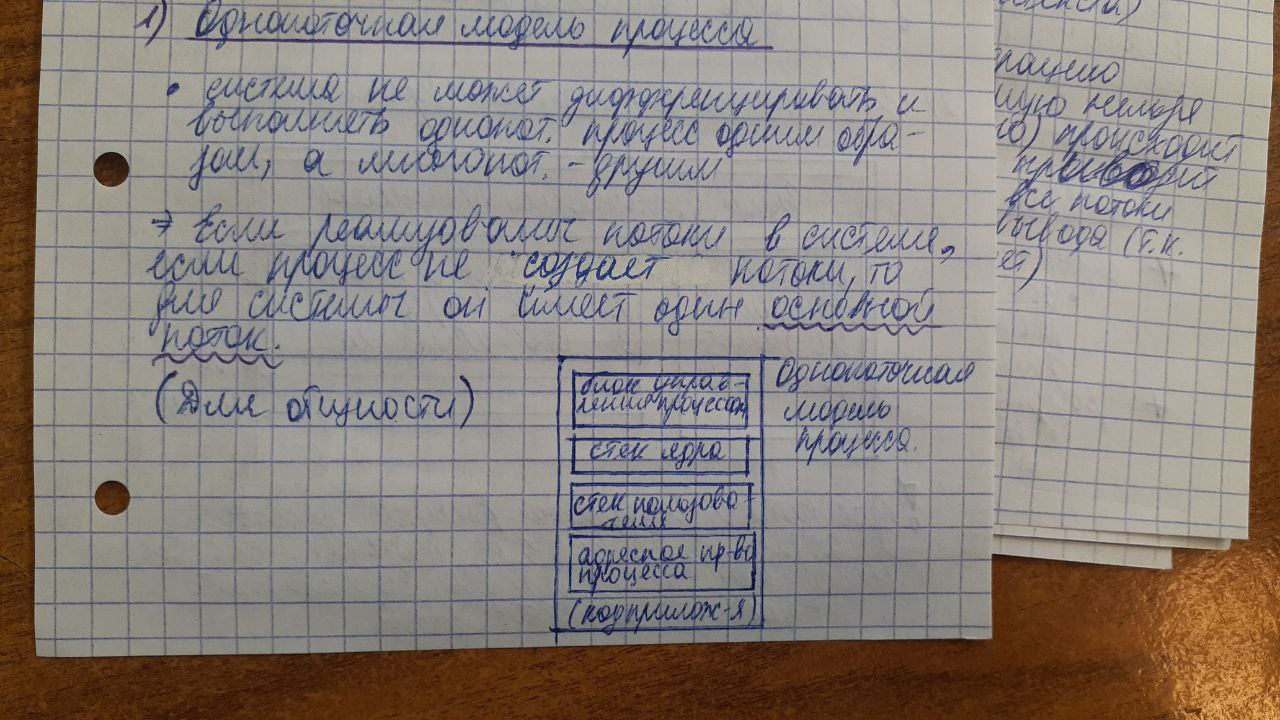 1) Однопоточная модель процесса
• система не может дифференцировать и
выполнять однопот. процесс одним обра-
зом, а многопот. - другим
→ Если реализованы потоки в системе,
если процесс не создает потоки, то
для системы он имеет один основной
поток.
(Для общности)
блок управ-
ления процессом
стек ядра
стек пользова
теля
адресное пр-во
процесса
(код прилож-я)
Однопоточная
модель
процесса.
происходит
все потоки
вывода (т.к.